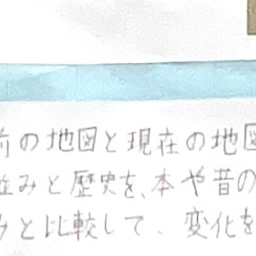 前の地図と現在の地図
並みと歴史を、本や昔の
みと比較して、変化を